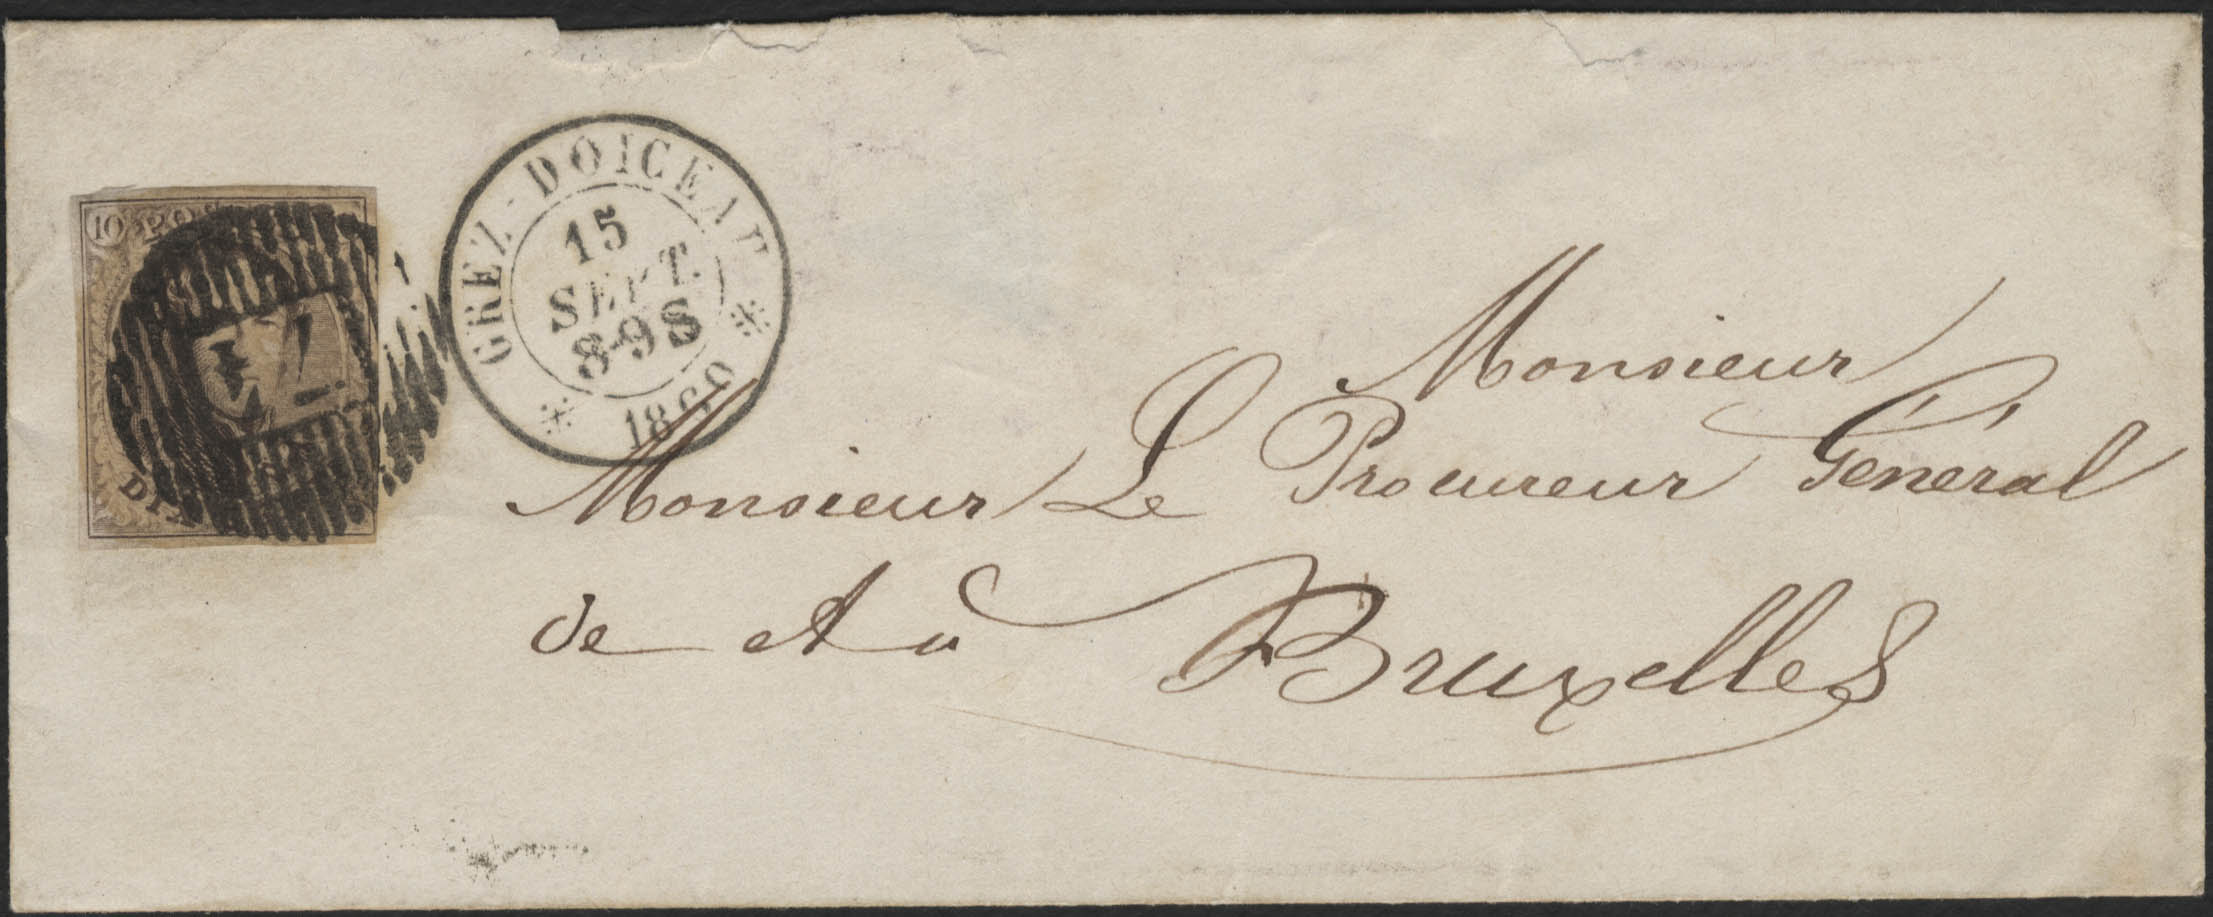 10 POS
DIX
GREZ-DOICEAU
15
SEPT.
8-9 S
1860
Monsieur
Monsieur Le Procureur Général
de et à Bruxelles